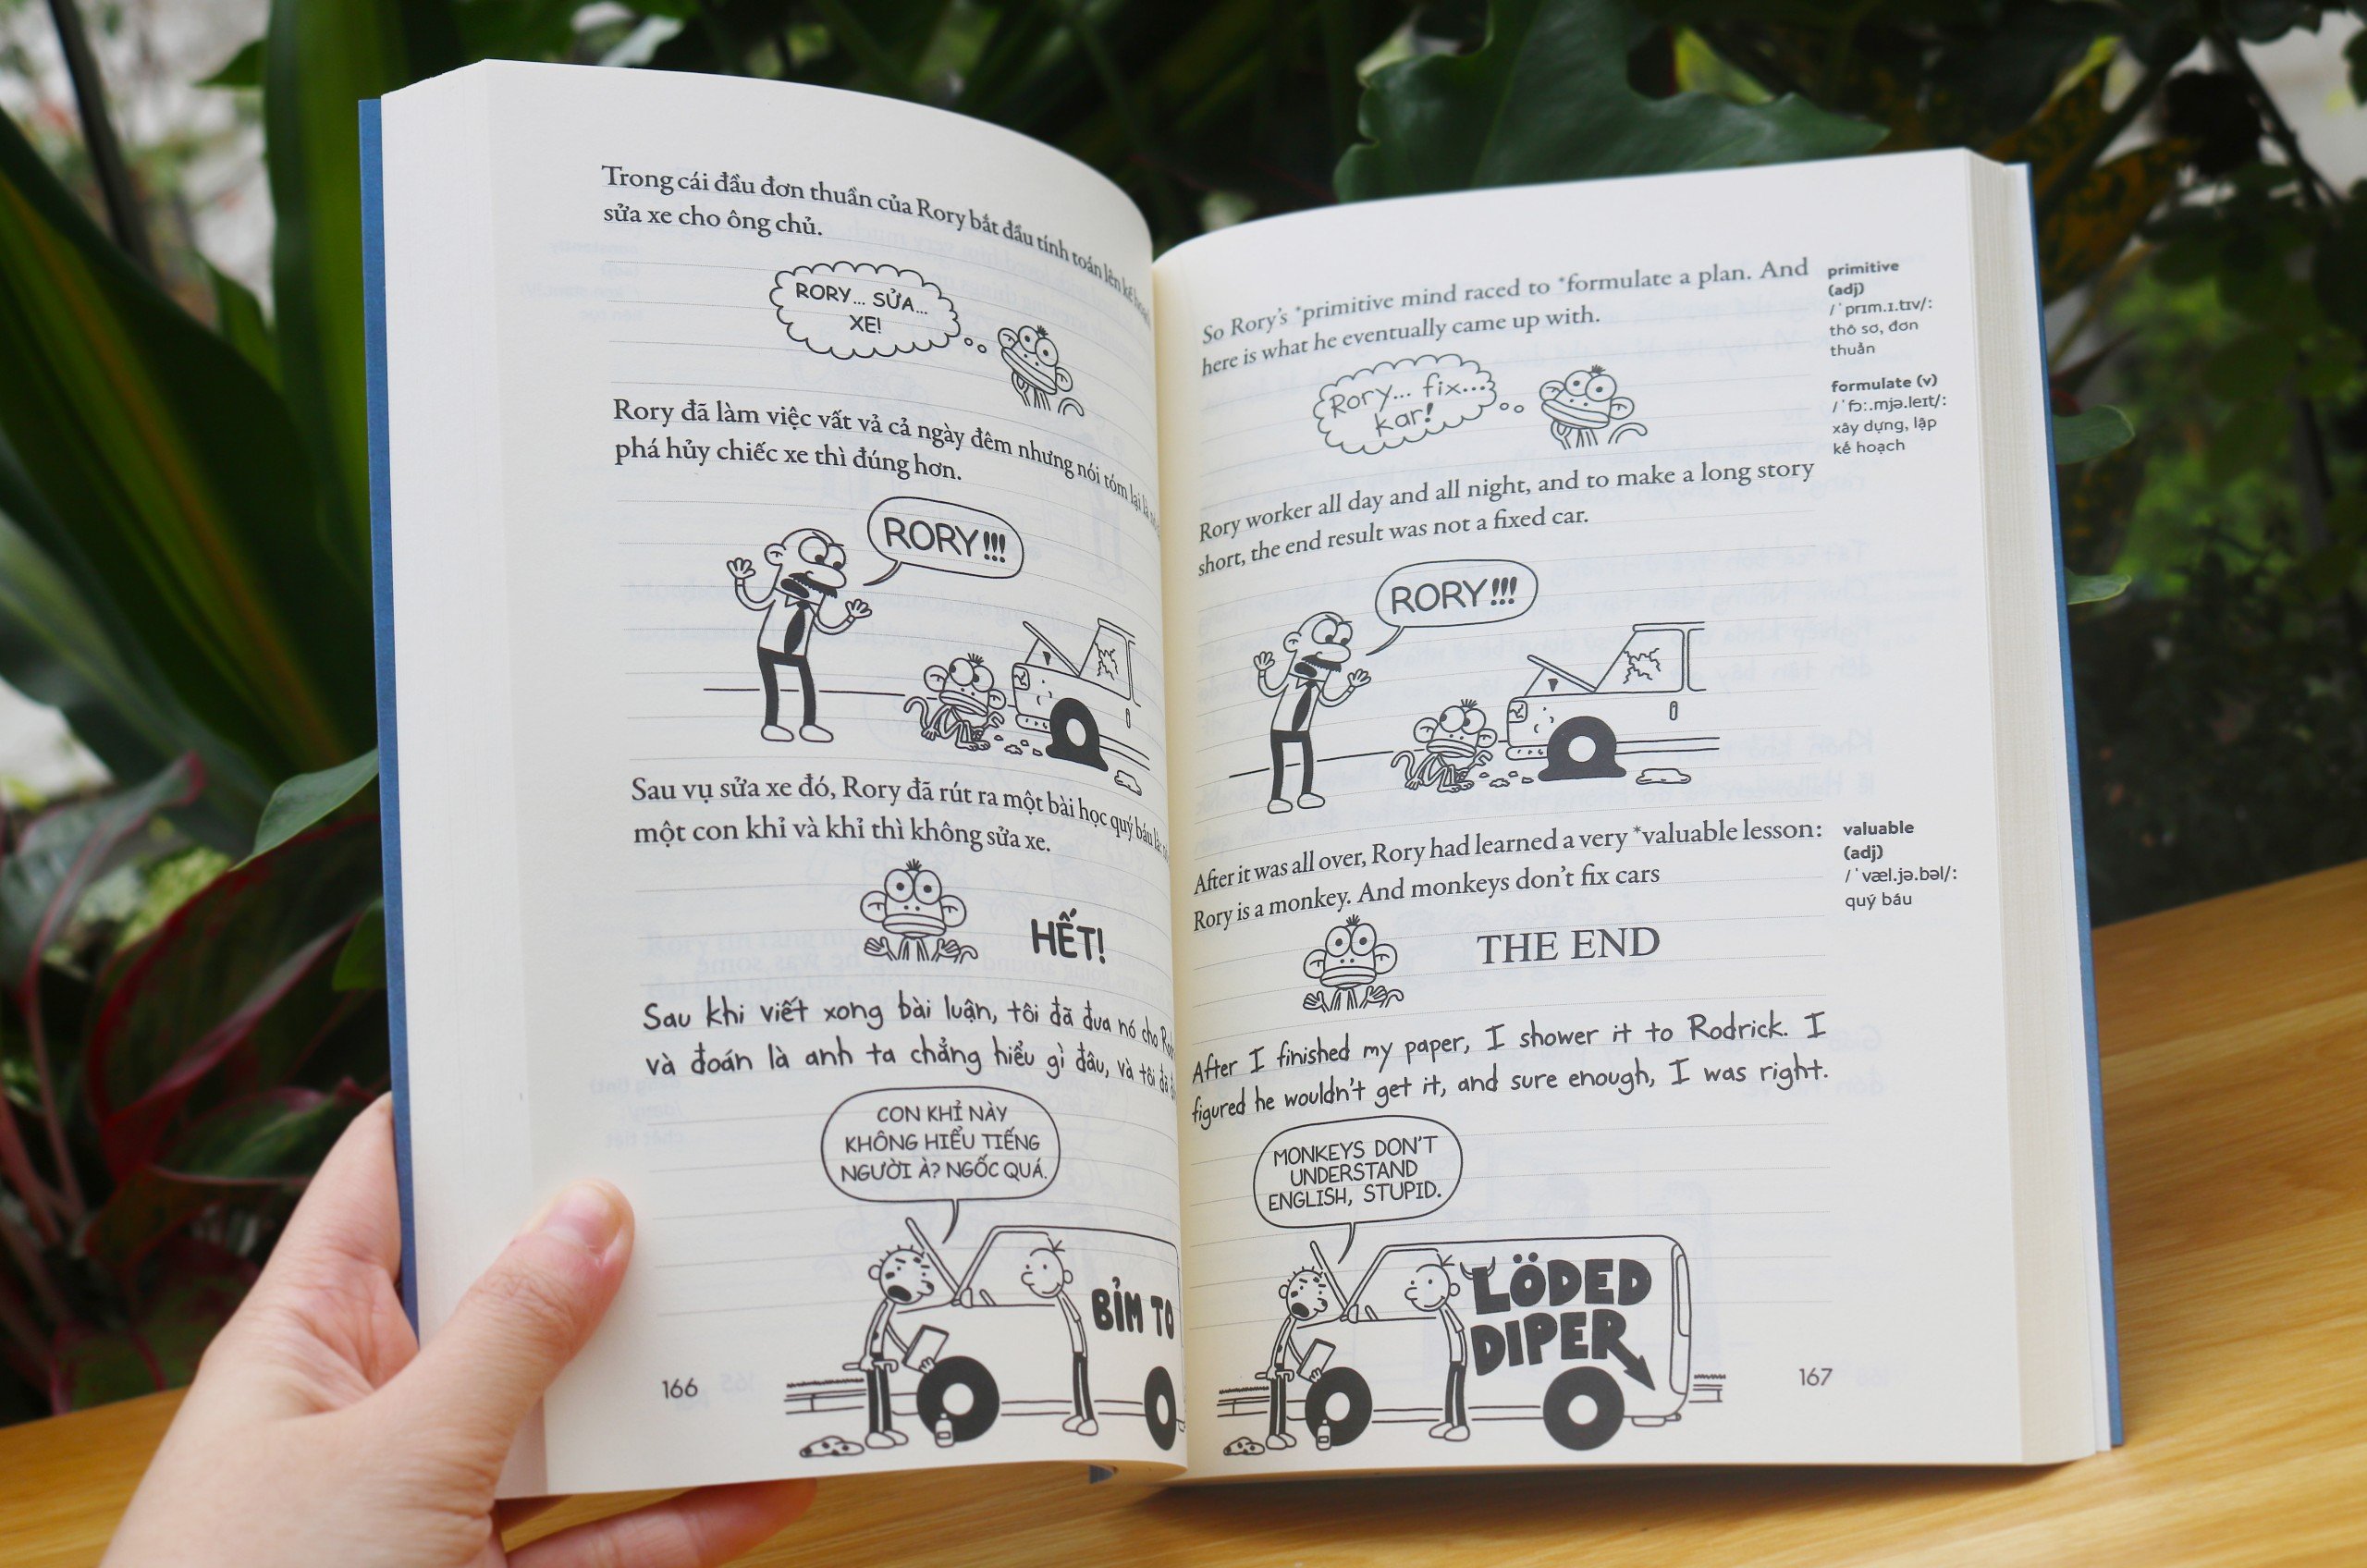 Trong cái đầu đơn thuần của Rory bắt đầu tính toán lên kế hoạch
sửa xe cho ông chủ.
RORY... SỬA...
XE!
Rory đã làm việc vất vả cả ngày đêm nhưng nói tóm lại là
phá hủy chiếc xe thì đúng hơn.
RORY!!!
Sau vụ sửa xe đó, Rory đã rút ra một bài học quý báu là:
một con khỉ và khỉ thì không sửa xe.
HẾT!
Sau khi viết xong bài luận, tôi đã đưa nó cho
và đoán là anh ta chẳng hiểu gì đâu, và tôi đã
CON KHỈ NÀY
KHÔNG HIỂU TIẾNG
NGƯỜI À? NGỐC QUÁ.
BỈM TO
166
So Rory's *primitive mind raced to *formulate a plan. And
here is what he eventually came up with.
Rory... fix...
kar!
Rory worker all day and all night, and to make a long story
short, the end result was not a fixed car.
RORY!!!
After it was all over, Rory had learned a very *valuable lesson:
Rory is a monkey. And monkeys don't fix cars
THE END
After I finished my paper, I shower it to Rodrick. I
figured he wouldn't get it, and sure enough, I was right.
MONKEYS DON'T
UNDERSTAND
ENGLISH, STUPID.
LÖDED
DIPER
167
primitive
(adj)
/ˈprɪm.ɪ.tɪv/:
thô sơ, đơn
thuần
formulate (v)
/ˈfɔː.mjə.leɪt/:
xây dựng, lập
kế hoạch
valuable
(adj)
/ˈvæl.jə.bəl/:
quý báu